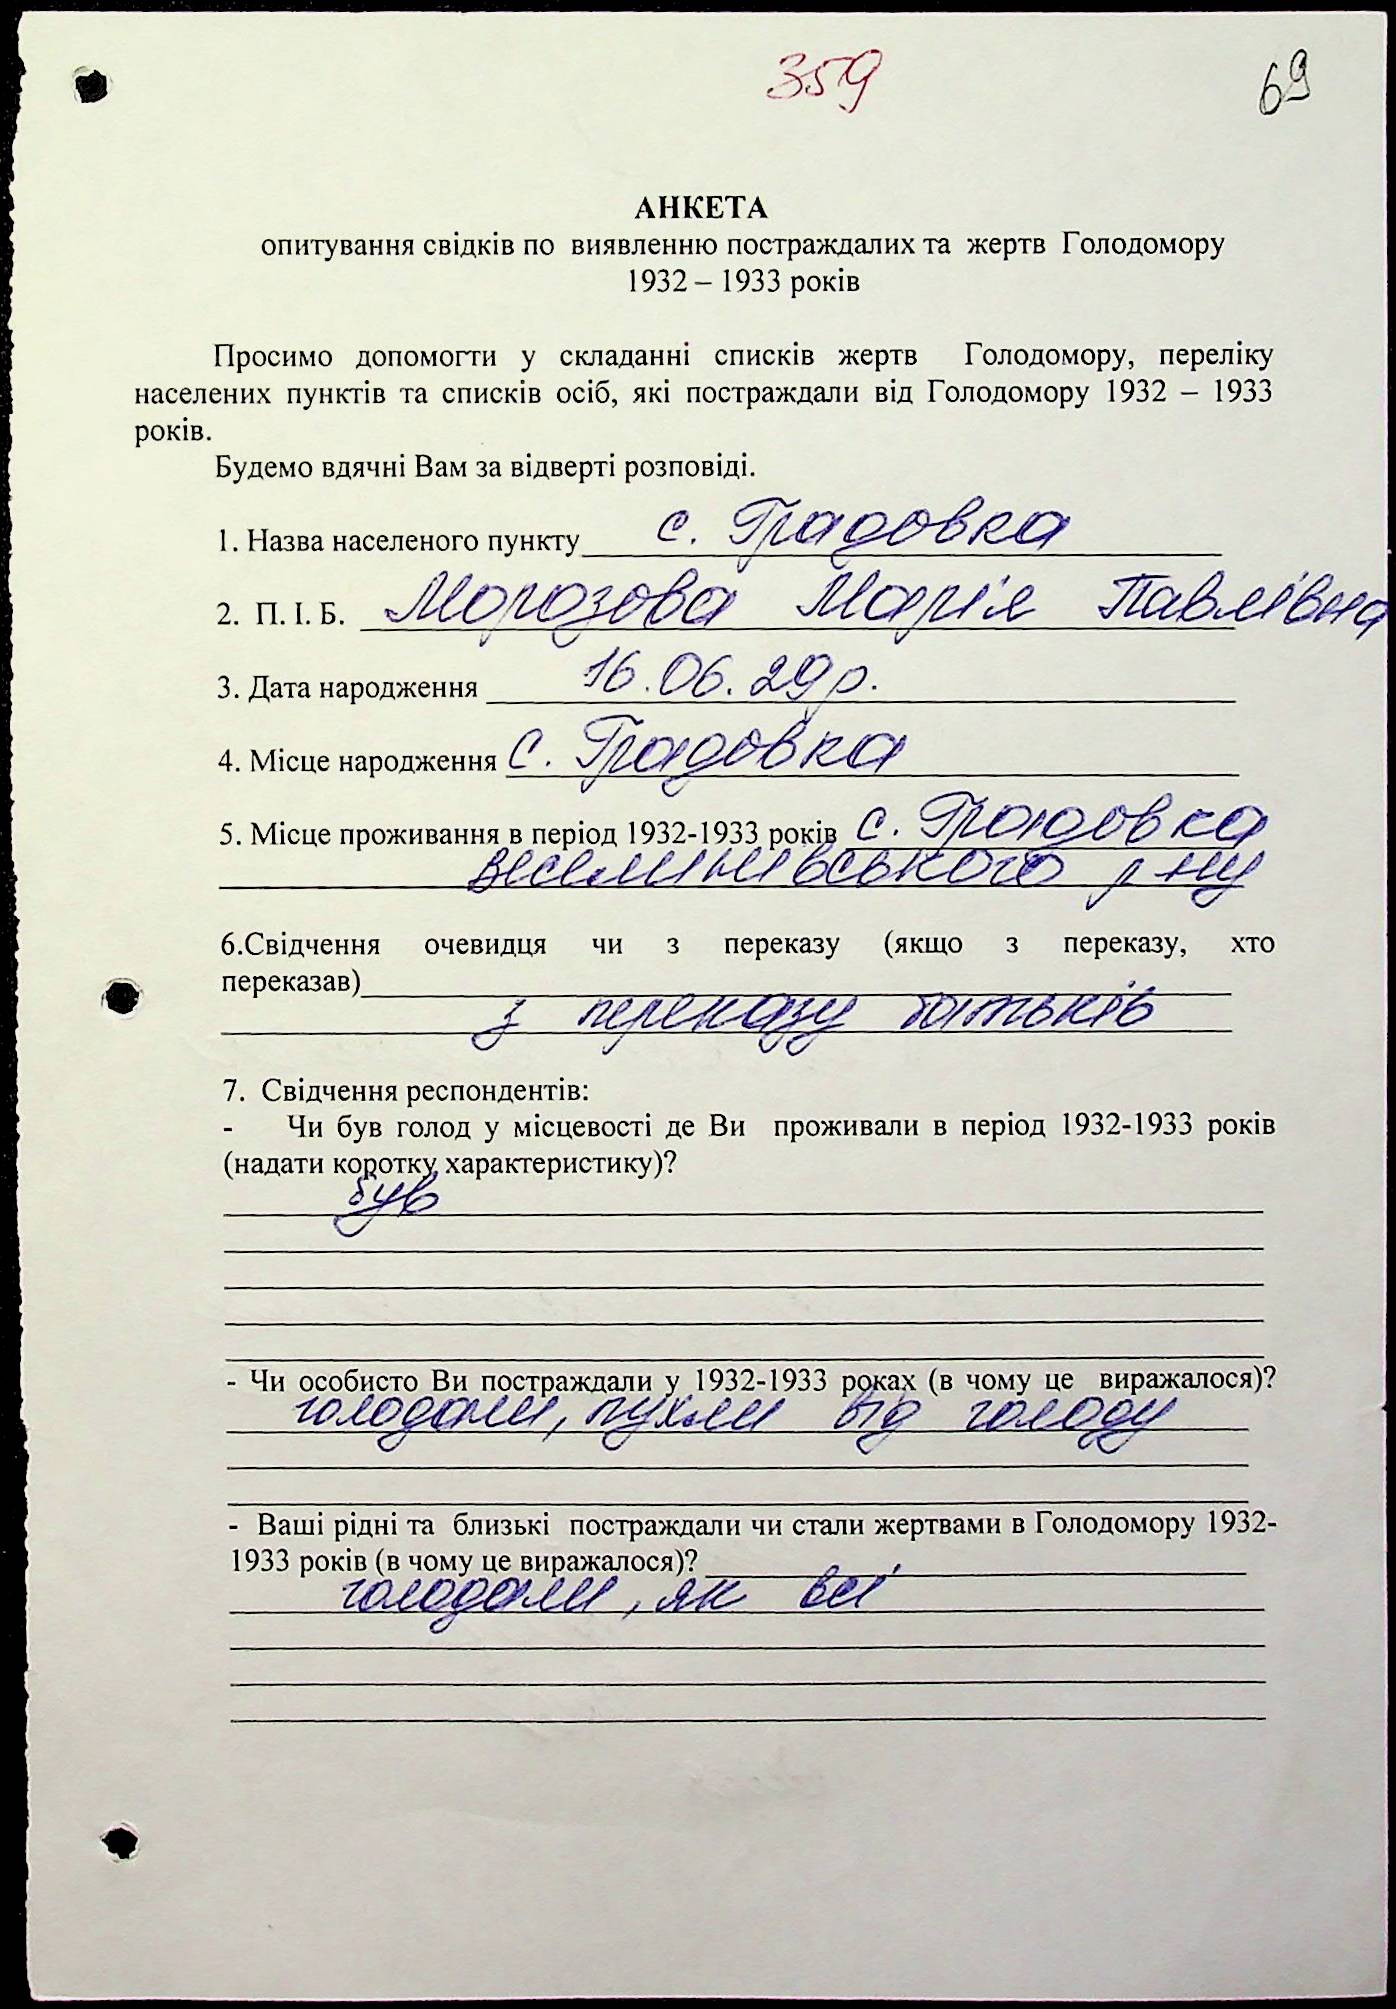 359
69
АНКЕТА
опитування свідків по виявленню постраждалих та жертв Голодомору
1932 – 1933 років
Просимо допомогти у складанні списків жертв Голодомору, переліку
населених пунктів та списків осіб, які постраждали від Голодомору 1932 – 1933
років.
Будемо вдячні Вам за відверті розповіді.
1. Назва населеного пункту с. Градовка
2. П. І. Б. Морозова Марія Павлівна
3. Дата народження 16.06.29р.
4. Місце народження с. Градовка
5. Місце проживання в період 1932-1933 років с. Градовка
веселинівського р ну
6.Свідчення очевидця чи з переказу (якщо з переказу, хто
переказав)
з переказу батьків
7. Свідчення респондентів:
- Чи був голод у місцевості де Ви проживали в період 1932-1933 років
(надати коротку характеристику)?
був
- Чи особисто Ви постраждали у 1932-1933 роках (в чому це виражалося)?
голодали, пухли від голоду
- Ваші рідні та близькі постраждали чи стали жертвами в Голодомору 1932-
1933 років (в чому це виражалося)?
голодали, як всі